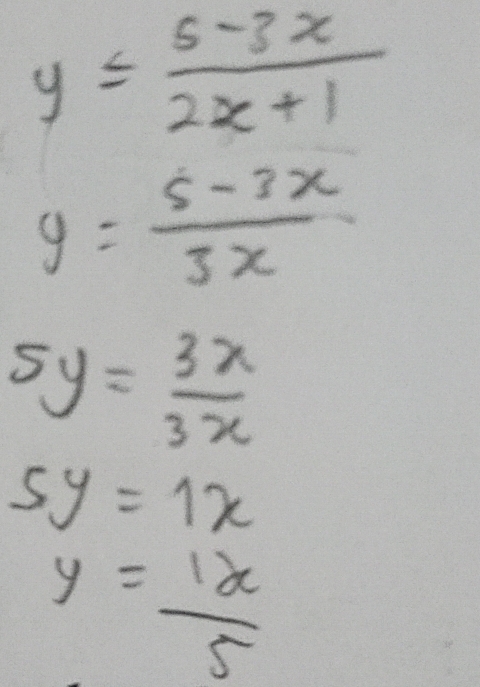 y = (5-3x)/(2x+1)
y = (5-3x)/(3x)
5y = (3x)/(3x)
5y = 1x
y = (1x)/5